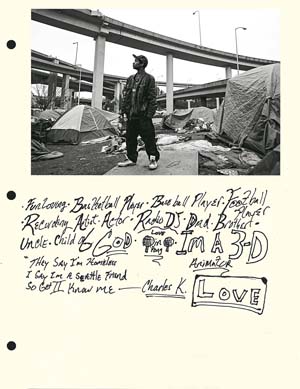 · Fun Loving · Basketball Player · Baseball Player · Football Player
Recording Artist · Actor · Radio DJ · Dad · Brother ·
Uncle · Child of GOD · Love Ping Pong · I'm A 3-D
Animator
"They Say I'm Homeless
I Say I'm a Seattle Friend
So Get II Know me — Charles K.
LOVE